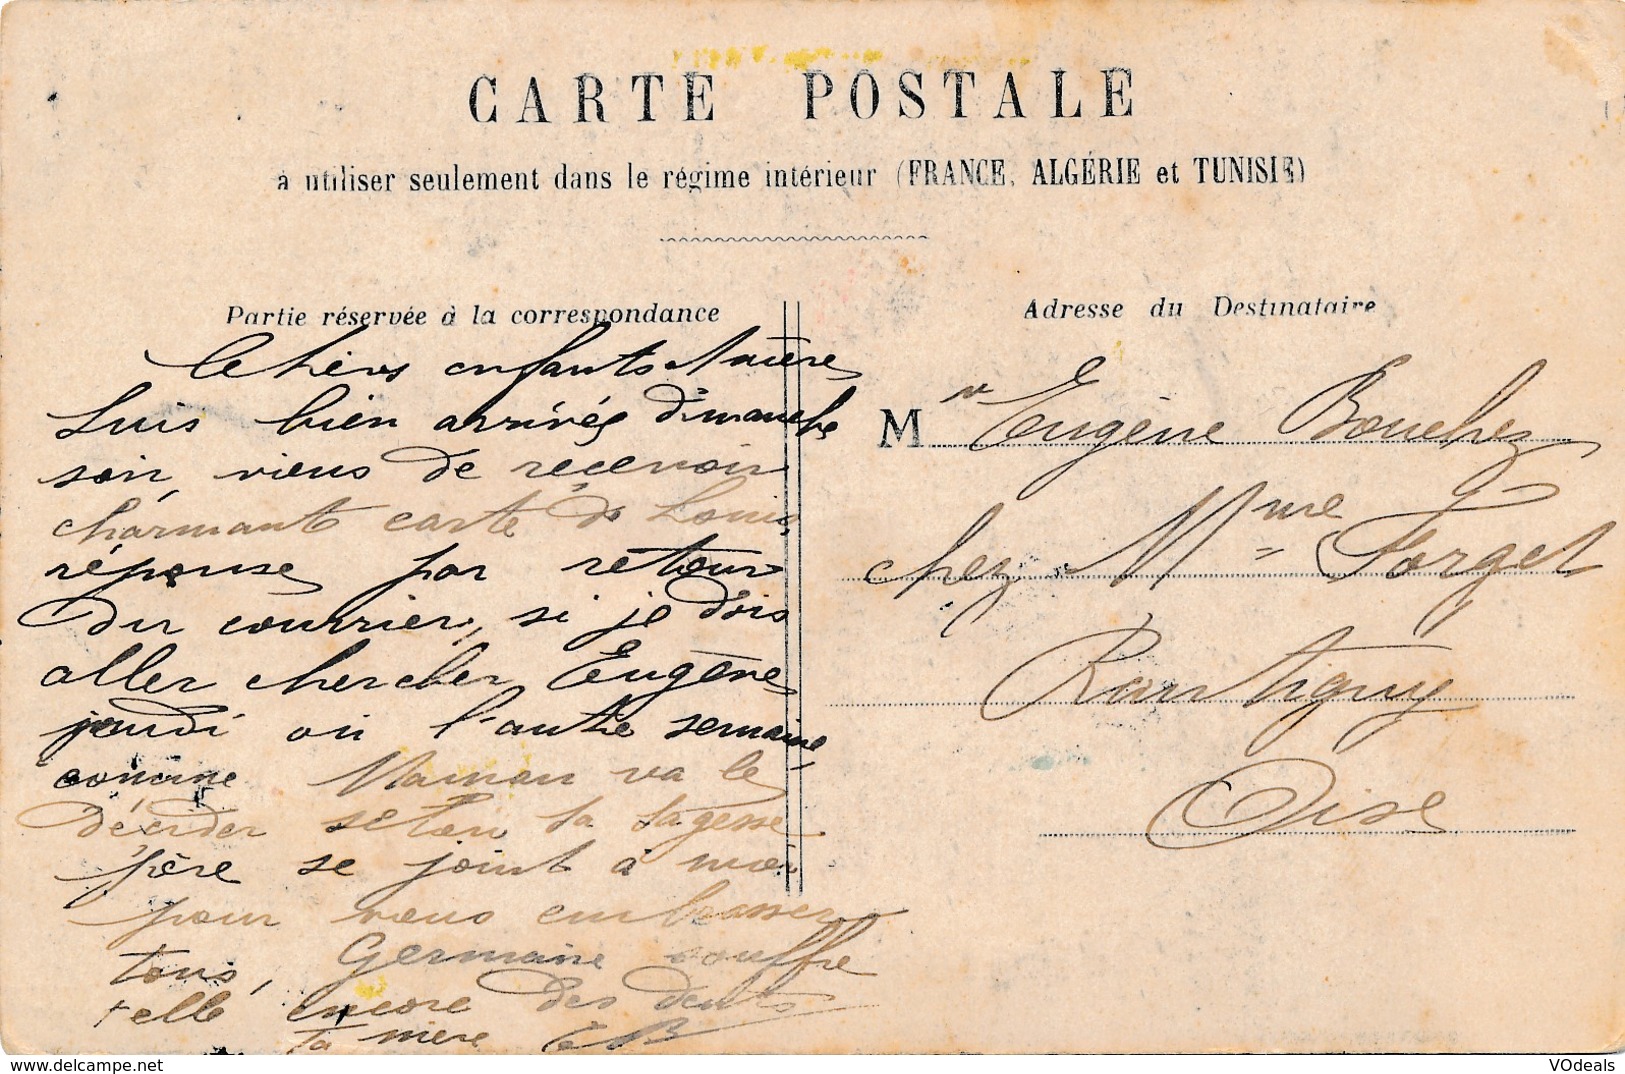 CARTE POSTALE
à utiliser seulement dans le régime intérieur (FRANCE, ALGÉRIE et TUNISIE)
Partie réservée à la correspondance
Adresse du Destinataire
Chers enfants
suis bien arrivée dimanche
soir, viens de recevoir
charmante carte de Louis,
réponse par retour
du courrier, si je dois
aller chercher Eugène
jeudi ou l'autre semaine,
comme Maman va le
décider selon sa sagesse
père se joint à moi
pour vous embrasser
tous, Germaine souffre
telle encore des dents
ta mère
M r Eugène Bouchez
chez Mme Forget
Rantigny
Oise
VOdeals
www.delcampe.net